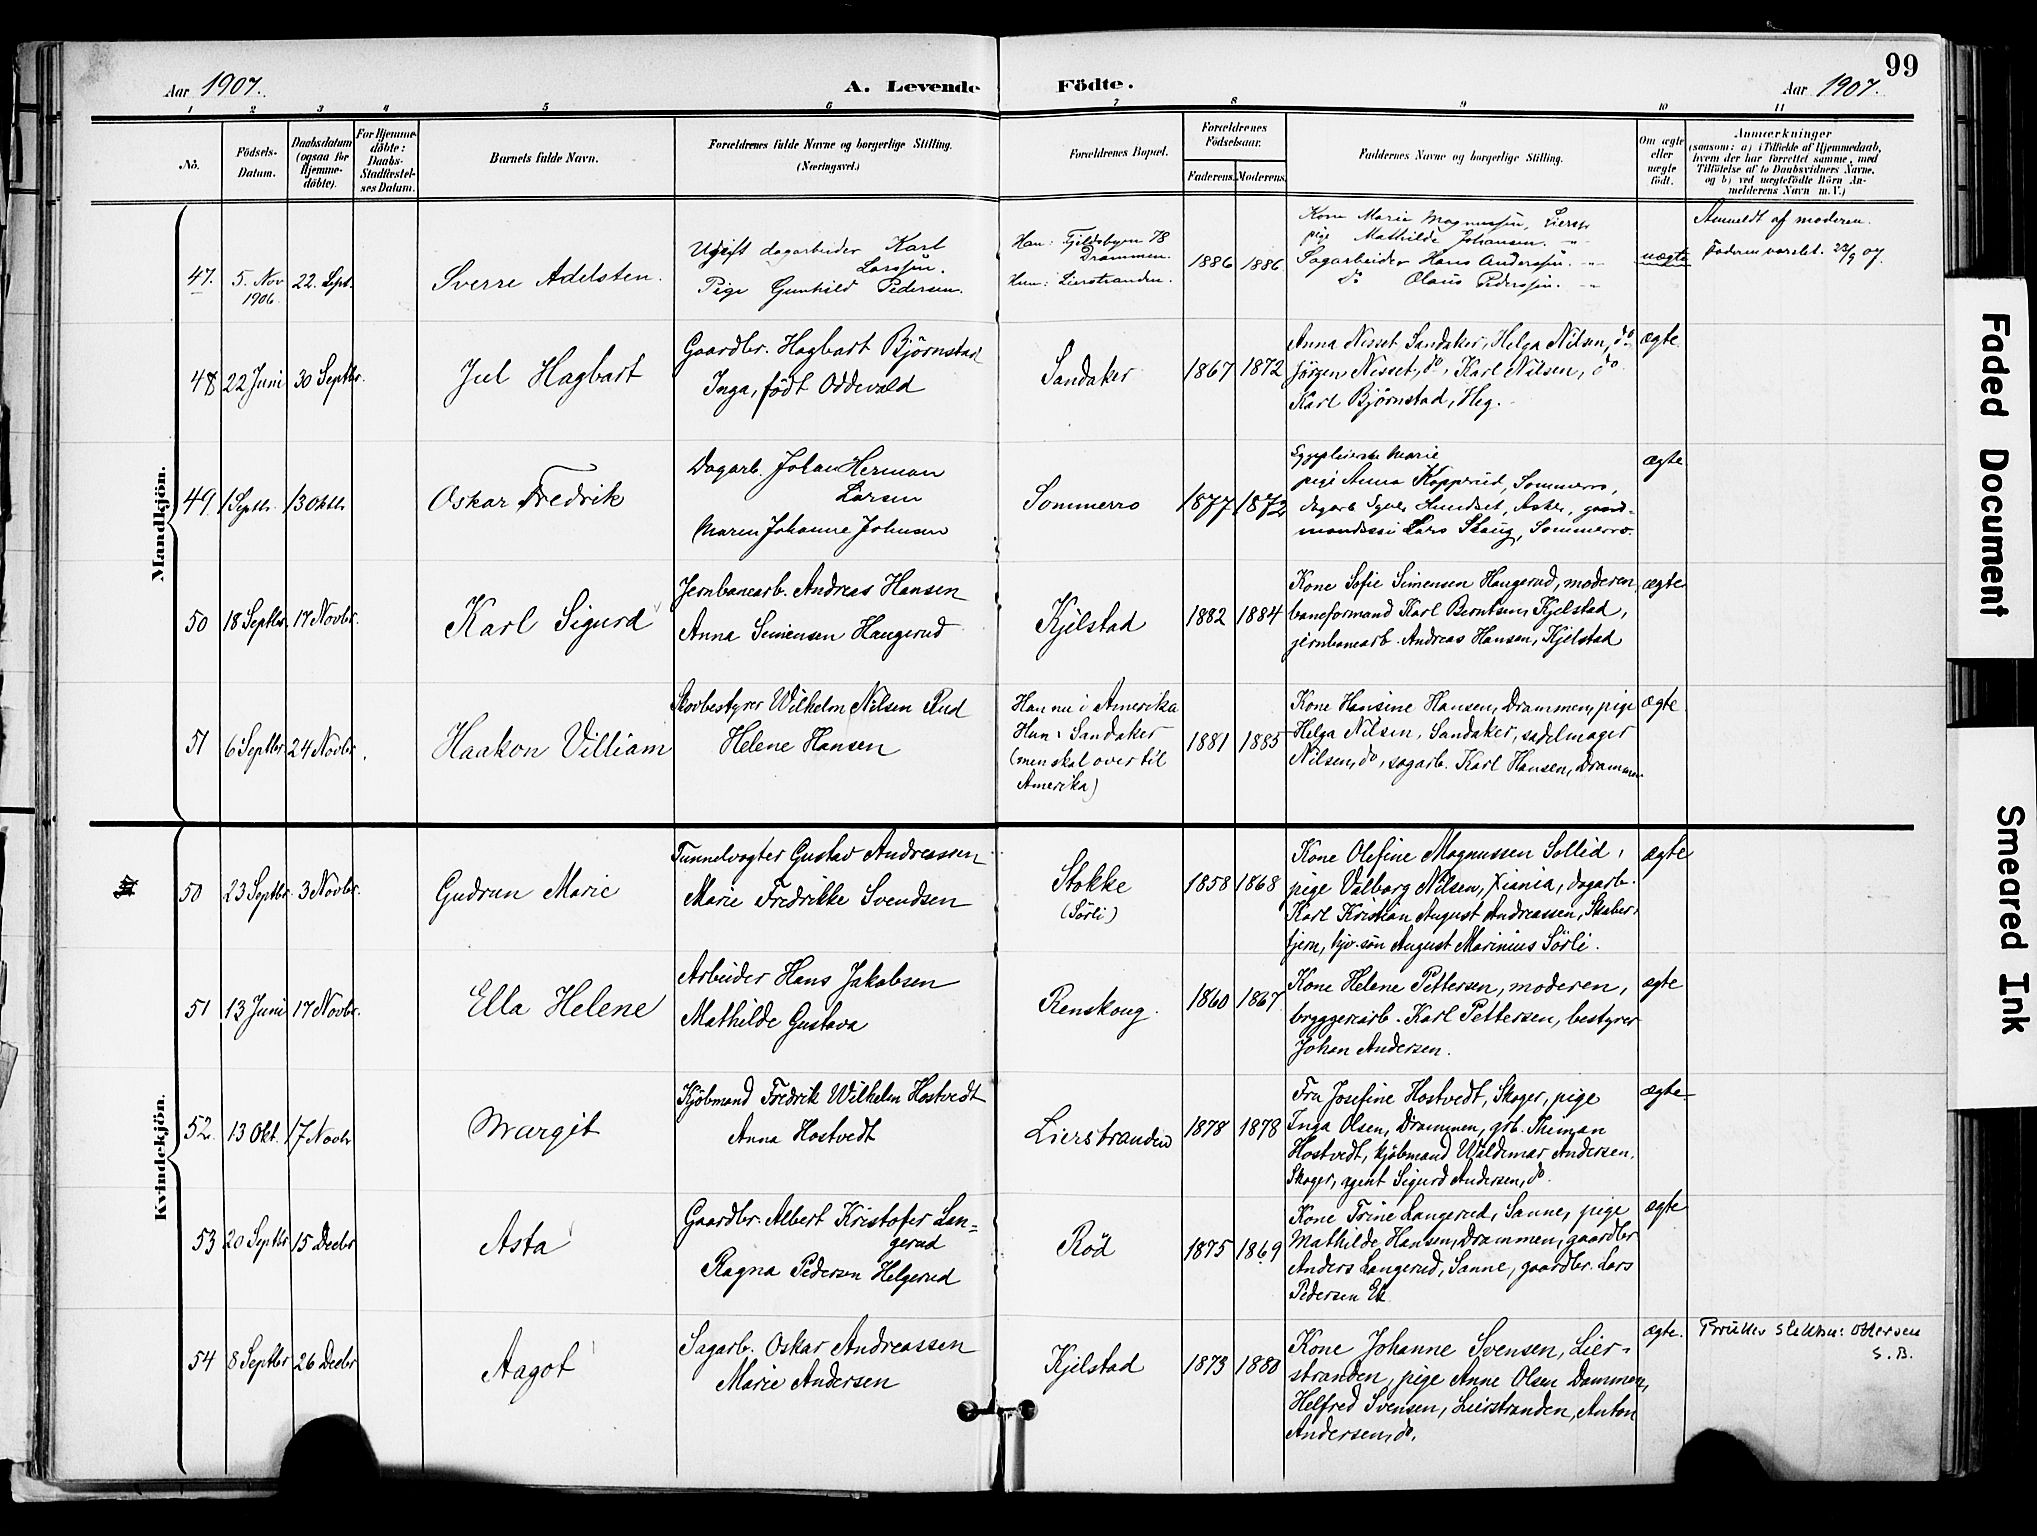 99
Aar 1907.
A. Levende Födte.
Aar 1907.
1 2 3 4 5 6 7 8 9 10 11
No.
Födsels-
Datum.
Daabsdatum
(ogsaa for
Hjemme-
döbte).
For Hjemme-
döbte:
Daabs-
Stadfæstel-
ses Datum.
Barnets fulde Navn.
Forældrenes fulde Navne og borgerlige Stilling.
(Næringsvei.)
Forældrenes Bopæl.
Forældrenes
Födselsaar.
Faderens. Moderens.
Faddernes Navne og borgerlige Stilling.
Om ægte
eller
uægte
födt.
Anmærkninger
(saasom: a) i Tilfælde af Hjemmedaab,
hvem der har forrettet samme, med
Tilföielse af to Daabsvidners Navne,
og b) ved uægtefödte Börn An-
melderens Navn m. V.)
Mandkjön.
47. 5. Nov 1906. 22. Sept. Sverre Adelsten.
Ugift dagarbeider Karl
Larssen.
Pige Gunhild Pedersen.
Han: Fjeldsbyen 78
Drammen.
Hun: Lierstranden.
1886 1886
Kone Marie Magnussen, Lierstr
pige Mathilde Johansen. -"-
Sagarbeider Hans Anderssen. -"-
do Olaus Pederssen. -"-
uægte
Anmeldt af moderen.
Faderen varslet. 23/9 07.
48 22 Juni 30 Septbr. Juel Hagbart
Gaardbr. Hagbart Björnstad
Inga, födt Oddevald
Sandaker 1867 1872
Anna Nisset Sandaker, Helga Nilsen, do
Jörgen Nisset, do, Karl Nilsen, do
Karl Björnstad, Heg.
ægte
49 1 Septbr. 13 Oktbr Oskar Fredrik
Dagarb. Johan Herman
Larsen
Maren Johanne Johnsen
Sommerro 1877 1872
Marie
pige Anna Kopperud, Sommerro,
dagarb Hundset, Asker, gaard-
Lars Skaug, Sommerro.
ægte
50 18 Septbr. 17 Novbr. Karl Sigurd
Jernbanearb. Andreas Hansen
Anna Simensen Haugerud
Kjelstad 1882 1884
Kone Sofie Simensen Haugerud, moderen,
baneformand Karl Berntsen, Kjelstad,
jernbanearb. Andreas Hansen, Kjelstad
ægte
51 6 Septbr 24 Novbr. Haakon Villiam
Skovbestyrer Wilhelm Nilsen Rud
Helene Hansen
Han nu i Amerika
Hun: Sandaker
(men skal over til
Amerika)
1881 1885
Kone Hansine Hansen, Drammen, pige
Helga Nilsen, Sandaker, sadelmager
Nilsen, do, sagarb. Karl Hansen, Drammen
ægte
Kvindekjön.
50 23 Septbr. 3 Novbr. Gudrun Marie
Tunnelvogter Gustav Andreassen
Marie Fredrikke Svendsen
Stokke
(Sörli)
1858 1868
Kone Olefine Magnussen Sollid,
pige Valborg Nilsen, Xiania, dagarb.
Karl Kristian August Andreassen, Skaber-
sjern, hjv. sön August Marinius Sörli.
ægte
51 13 Juni 17 Novbr. Ella Helene
Arbeider Hans Jakobsen
Mathilde Gustava
Renskoug. 1860 1867
Kone Helene Pettersen, moderen,
bryggeriarb. Karl Pettersen, bestyrer
Johan Andersen.
ægte
52. 13 Okt. 17 Novbr Margit
Kjöbmand Fredrik Wilhelm Hostvedt
Anna Hostvedt
Lierstranden 1878 1878
Fru Josefine Hostvedt, Skoger, pige
Inga Olsen, Drammen, grb. Theman
Hostvedt, kjöbmand Waldemar Andersen,
Skoger, agent Sigurd Andersen, do.
ægte
53 20 Septbr 15 Decbr Asta
Gaardbr. Albert Kristofer Lan-
gerud
Ragna Pedersen Helgerud
Röd 1875 1869
Kone Trine Langerud, Sanne, pige
Mathilde Hansen, Drammen, gaardbr
Anders Langerud, Sanne, gaardbr. Lars
Pedersen Ek
ægte
54 8 Septbr 26 Decbr Aagot
Sagarb. Oskar Andreassen
Marie Andersen
Kjelstad 1873 1880
Kone Johanne Svensen, Lier-
stranden, pige Anne Olsen Dammen,
Helfred Svensen, Lierstranden, Anton
Andersen, do.
ægte.
Ottersen
S.B.
Faded Document
Smeared Ink